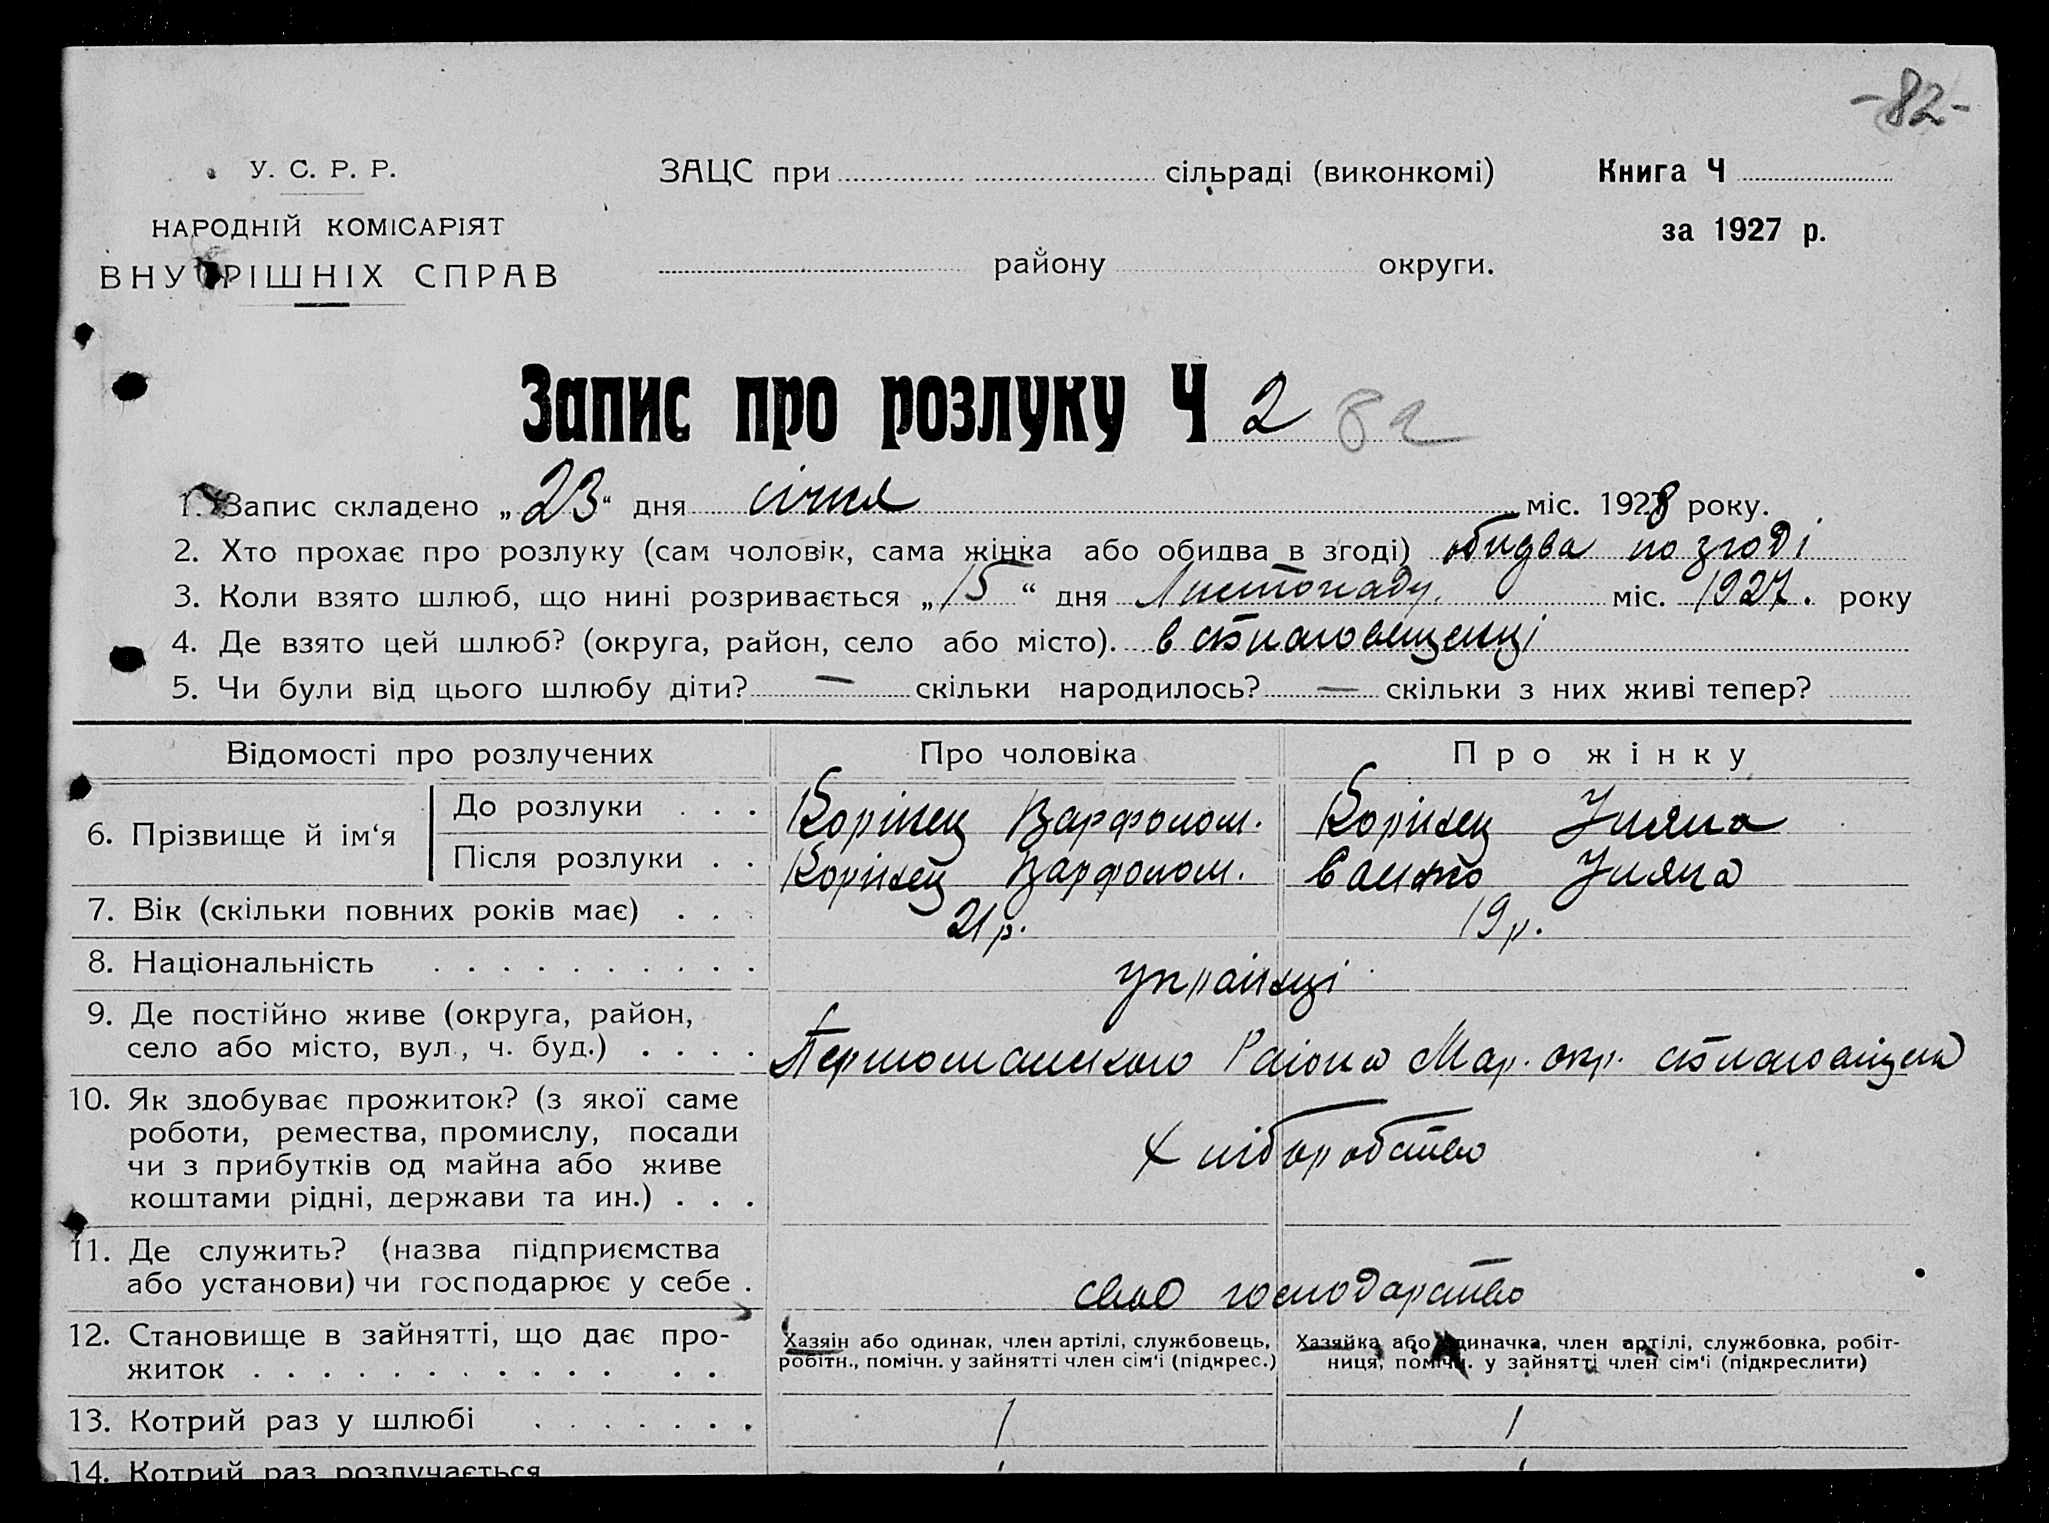 -82-
У. С. Р. Р.
НАРОДНІЙ КОМІСАРІЯТ
ВНУТРІШНІХ СПРАВ
ЗАЦС при сільраді (виконкомі)
району округи.
Книга Ч
за 1927 р.
Запис про розлуку Ч 2 82
1. Запис складено „23“ дня січня міс. 1928 року.
2. Хто прохає про розлуку (сам чоловік, сама жінка або обидва в згоді) обидва по згоді
3. Коли взято шлюб, що нині розривається „15“ дня Листопаду міс. 1927. року
4. Де взято цей шлюб? (округа, район, село або місто). в
5. Чи були від цього шлюбу діти? — скільки народилось? — скільки з них живі тепер?
Відомості про розлучених Про чоловіка Про жінку
6. Прізвище й ім‘я
До розлуки . . . Корінец Варфолом. Корінец Уляна
Після розлуки . . Корінец Варфолом. Уляна
7. Вік (скільки повних років має) . . . 21 р. 19 р.
8. Національність . . . . . . . . . . українці
9. Де постійно живе (округа, район,
село або місто, вул., ч. буд.) . . . . Району Мар. окр.
10. Як здобуває прожиток? (з якої саме
роботи, ремества, промислу, посади
чи з прибутків од майна або живе
коштами рідні, держави та ин.) . . .
Хліборобство
11. Де служить? (назва підприємства
або установи) чи господарює у себе .
своє господарство
12. Становище в зайнятті, що дає про-
житок . . . . . . . . . . . . .
Хазяін або одинак, член артілі, службовець,
робітн., помічн. у зайнятті член сім‘ї (підкрес.)
Хазяйка або одиначка, член артілі, службовка, робіт-
ниця, помічн. у зайнятті член сім‘ї (підкреслити)
13. Котрий раз у шлюбі . . . . . . . 1 1
14. Котрий раз розлучається